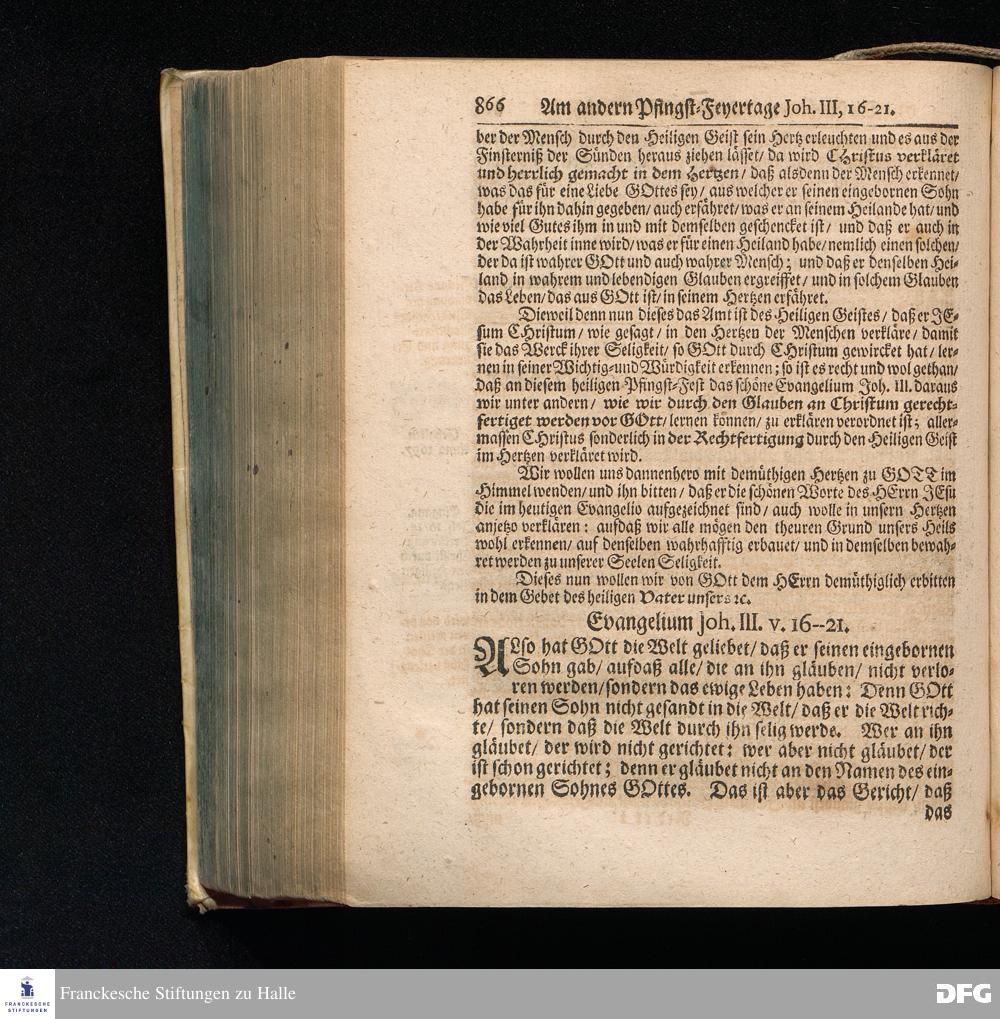 866 Am andern Pfingst-Feyertage Joh. III, 16-21.
ber der Mensch durch den Heiligen Geist sein Hertz erleuchten und es aus der
Finsterniß der Sünden heraus ziehen lässet/ da wird CHristus verkläret
und herrlich gemacht in dem Hertzen/ daß alsdenn der Mensch erkennet/
was das für eine Liebe GOttes sey/ aus welcher er seinen eingebornen Sohn
habe für ihn dahin gegeben/ auch erfähret/ was er an seinem Heilande hat/ und
wie viel Gutes ihm in und mit demselben geschencket ist/ und daß er auch in
der Wahrheit inne wird/ was er für einen Heiland habe/ nemlich einen solchen/
der da ist wahrer GOtt und auch wahrer Mensch; und daß er denselben Hei-
land in wahrem und lebendigen Glauben ergreiffet/ und in solchem Glauben
das Leben/ das aus GOtt ist/ in seinem Hertzen erfähret.
Dieweil denn nun dieses das Amt ist des Heiligen Geistes/ daß er JE-
sum CHristum/ wie gesagt/ in den Hertzen der Menschen verkläre/ damit
sie das Werck ihrer Seligkeit/ so GOtt durch CHristum gewircket hat/ ler-
nen in seiner Wichtig-und Würdigkeit erkennen; so ist es recht und wol gethan/
daß an diesem heiligen Pfingst-Fest das schöne Evangelium Joh. III. daraus
wir unter andern/ wie wir durch den Glauben an Christum gerecht-
fertiget werden vor GOtt/ lernen können/ zu erklären verordnet ist; aller-
massen CHristus sonderlich in der Rechtfertigung durch den Heiligen Geist
im Hertzen verkläret wird.
Wir wollen uns dannenhero mit demüthigen Hertzen zu GOTT im
Himmel wenden/ und ihn bitten/ daß er die schönen Worte des HErrn JEsu
die im heutigen Evangelio aufgezeichnet sind/ auch wolle in unsern Hertzen
anjetzo verklären: aufdaß wir alle mögen den theuren Grund unsers Heils
wohl erkennen/ auf denselben wahrhafftig erbauet/ und in demselben bewah-
ret werden zu unserer Seelen Seligkeit.
Dieses nun wollen wir von GOtt dem HErrn demüthiglich erbitten
in dem Gebet des heiligen Vater unsers ꝛc.
Evangelium Joh. III. v. 16--21.
ALso hat GOtt die Welt geliebet/ daß er seinen eingebornen
Sohn gab/ aufdaß alle/ die an ihn gläuben/ nicht verlo-
ren werden/ sondern das ewige Leben haben: Denn GOtt
hat seinen Sohn nicht gesandt in die Welt/ daß er die Welt rich-
te/ sondern daß die Welt durch ihn selig werde. Wer an ihn
gläubet/ der wird nicht gerichtet: wer aber nicht gläubet/ der
ist schon gerichtet; denn er gläubet nicht an den Namen des ein-
gebornen Sohnes GOttes. Das ist aber das Gericht/ daß
das
FRANCKESCHE
STIFTUNGEN
Franckesche Stiftungen zu Halle
DFG